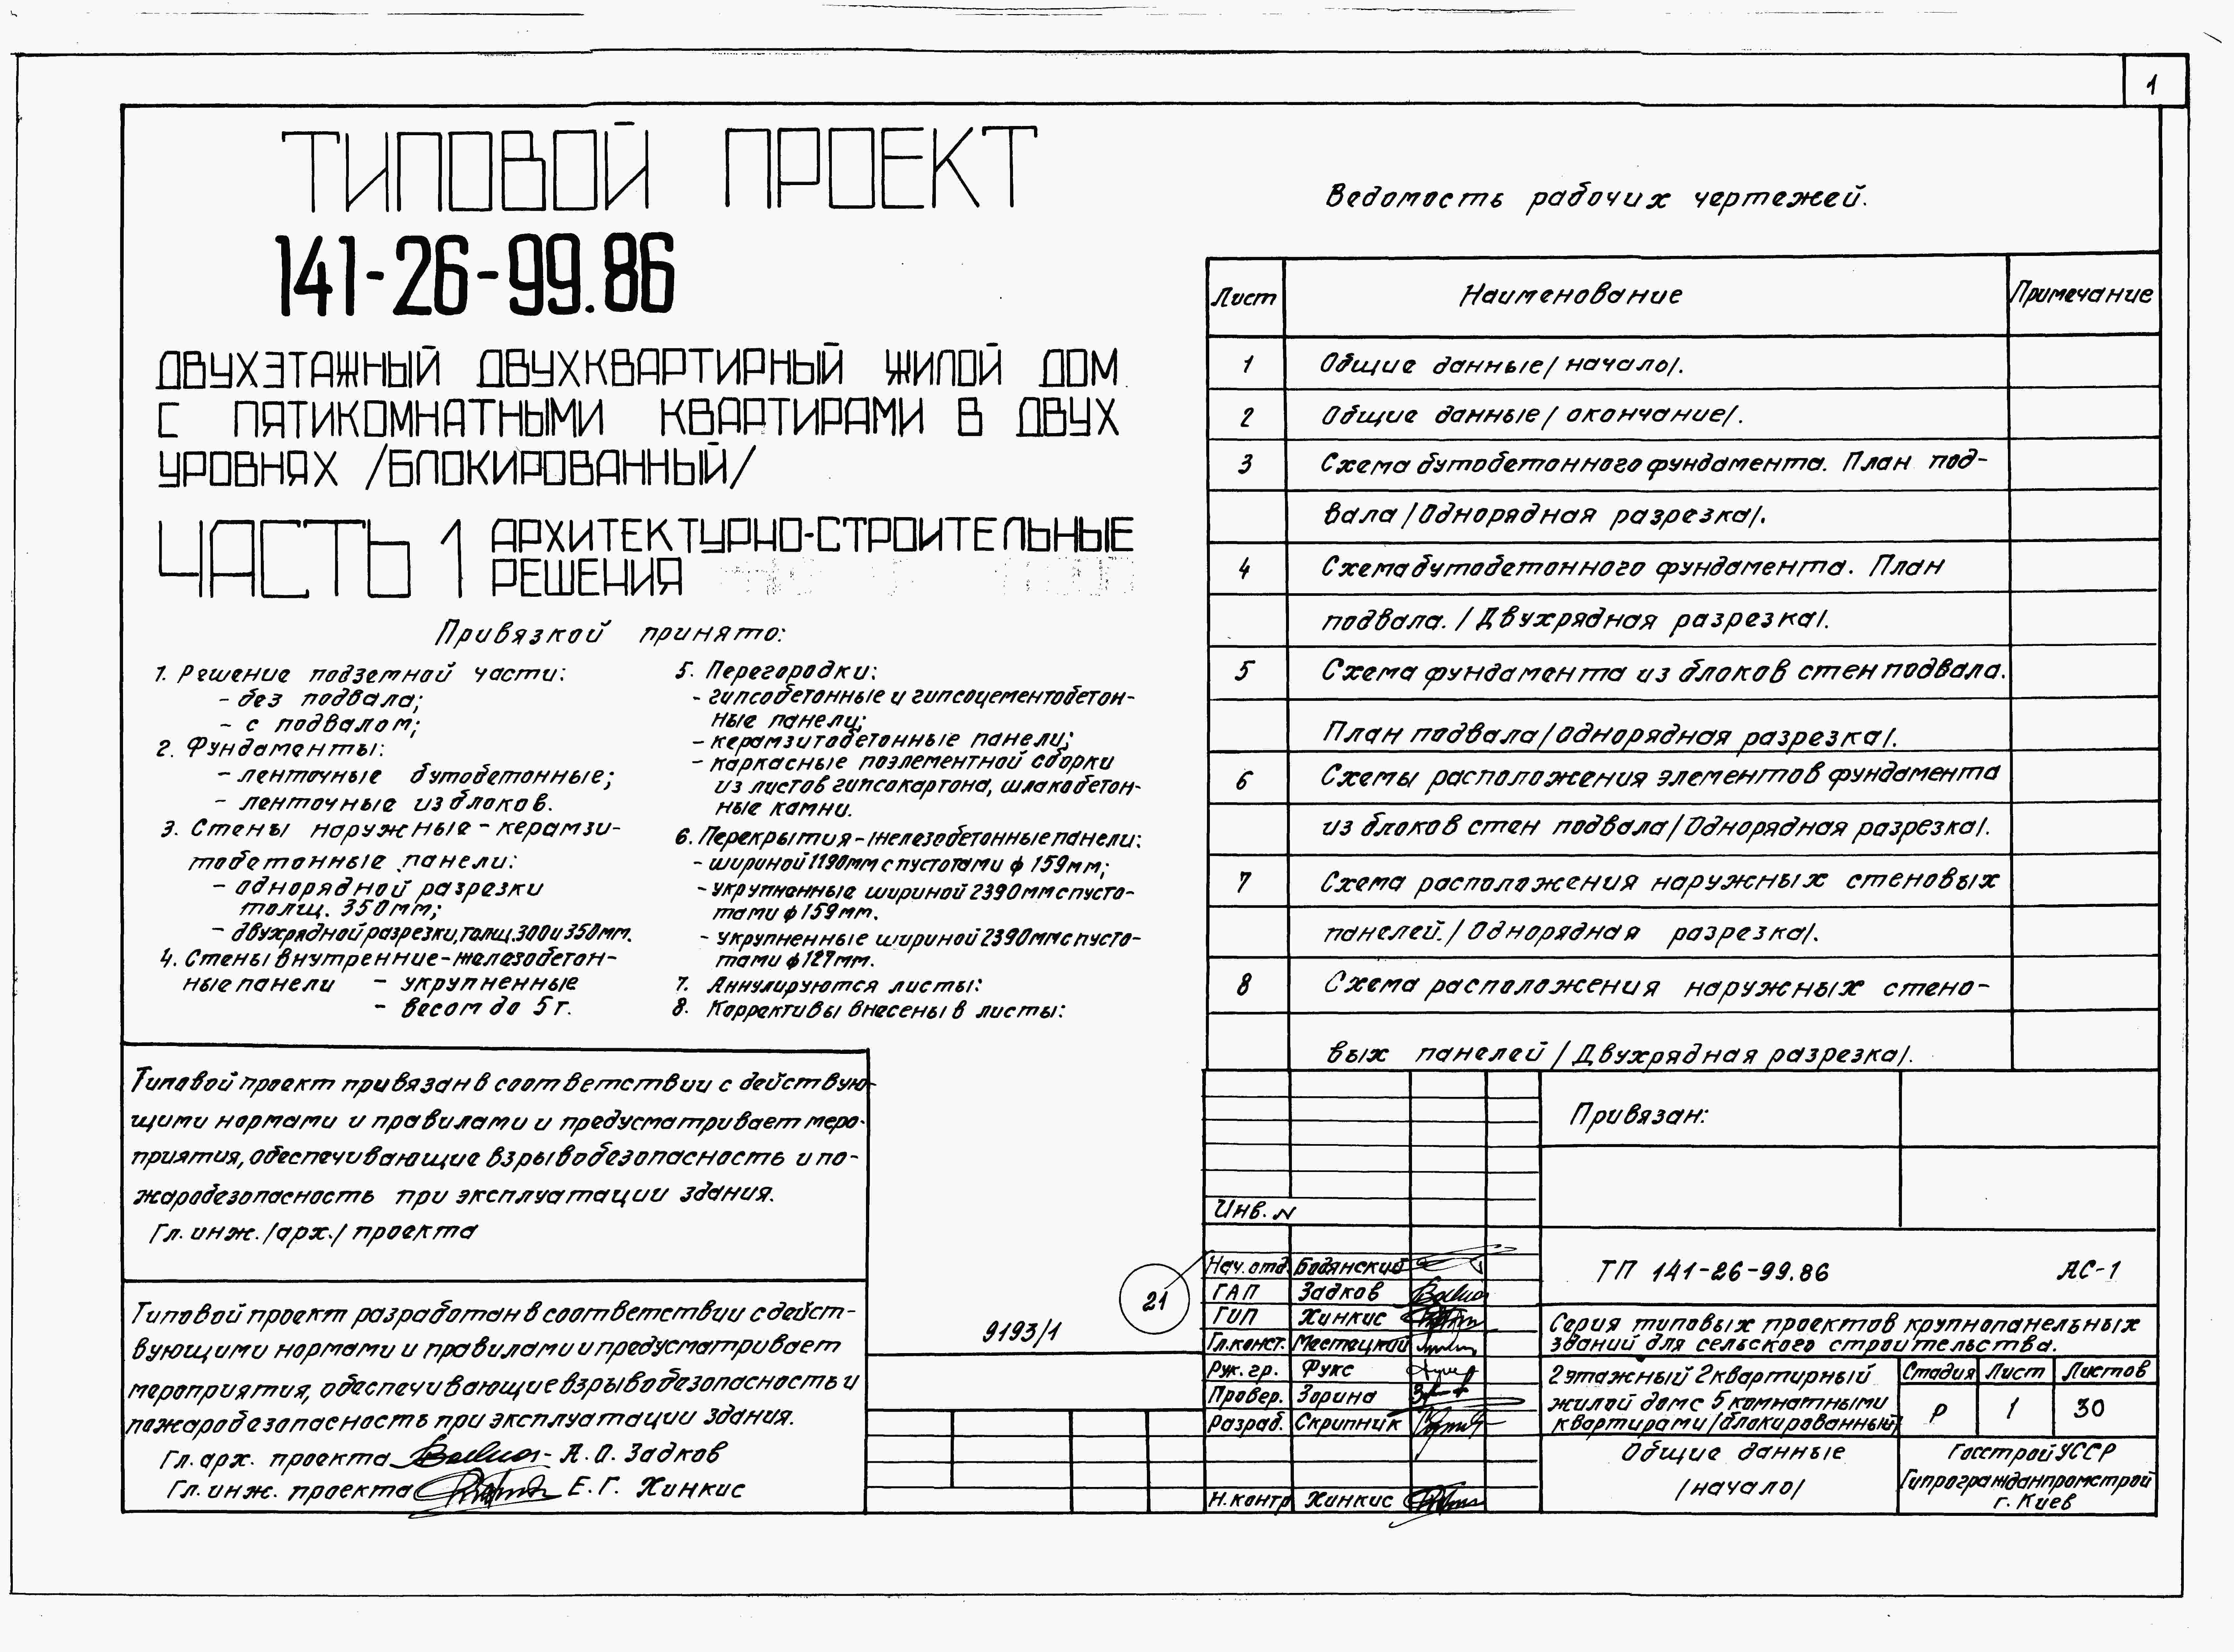 1
ТИПОВОЙ ПРОЕКТ
141-26-99.86
ДВУХЭТАЖНЫЙ ДВУХКВАРТИРНЫЙ ЖИЛОЙ ДОМ
С ПЯТИКОМНАТНЫМИ КВАРТИРАМИ В ДВУХ
УРОВНЯХ /БЛОКИРОВАННЫЙ/
ЧАСТЬ 1 АРХИТЕКТУРНО-СТРОИТЕЛЬНЫЕ
РЕШЕНИЯ
Привязкой принято:
1. Решение подземной части:
- без подвала;
- с подвалом;
2. Фундаменты:
- ленточные бутобетонные;
- ленточные из блоков.
3. Стены наружные - керамзи-
тобетонные панели:
- однорядной разрезки
толщ. 350мм;
- двухрядной разрезки, толщ. 300 и 350мм.
4. Стены внутренние - железобетон-
ные панели - укрупненные
- весом до 5т.
5. Перегородки:
- гипсобетонные и гипсоцементобетон-
ные панели;
- керамзитобетонные панели;
- каркасные поэлементной сборки
из листов гипсокартона, шлакобетон-
ные камни.
6. Перекрытия - железобетонные панели:
- шириной 1190мм с пустотами ф 159мм;
- укрупненные шириной 2390мм с пусто-
тами ф 159мм.
- укрупненные шириной 2390мм с пусто-
тами ф 127мм.
7. Аннулируются листы:
8. Коррективы внесены в листы:
Типовой проект привязан в соответствии с действую-
щими нормами и правилами и предусматривает меро-
приятия, обеспечивающие взрывобезопасность и по-
жаробезопасность при эксплуатации здания.
Гл. инж. /арх./ проекта
Типовой проект разработан в соответствии с дейст-
вующими нормами и правилами и предусматривает
мероприятия, обеспечивающие взрывобезопасность и
пожаробезопасность при эксплуатации здания.
Гл. арх. проекта А.О. Задков
Гл. инж. проекта Е.Г. Хинкис
9193/1
21
Ведомость рабочих чертежей.
Лист Наименование Примечание
1 Общие данные /начало/.
2 Общие данные /окончание/.
3 Схема бутобетонного фундамента. План под-
вала /Однорядная разрезка/.
4 Схема бутобетонного фундамента. План
подвала. /Двухрядная разрезка/.
5 Схема фундамента из блоков стен подвала.
План подвала /Однорядная разрезка/.
6 Схемы расположения элементов фундамента
из блоков стен подвала /Однорядная разрезка/.
7 Схема расположения наружных стеновых
панелей. /Однорядная разрезка/.
8 Схема расположения наружных стено-
вых панелей /Двухрядная разрезка/.
Привязан:
Инв. N
Нач. отд. Бодянский
ГАП Задков
ГИП Хинкис
Гл. конст. Местецкий
Рук. гр. Фукс
Провер. Зорина
Разраб. Скрипник
Н. контр Хинкис
ТП 141-26-99.86 АС-1
Серия типовых проектов крупнопанельных
зданий для сельского строительства.
2этажный 2квартирный
жилой дом с 5 комнатными
квартирами /блокированный/
Стадия Лист Листов
Р 1 30
Общие данные
/начало/
Госстрой УССР
Гипрогражданпромстрой
г. Киев